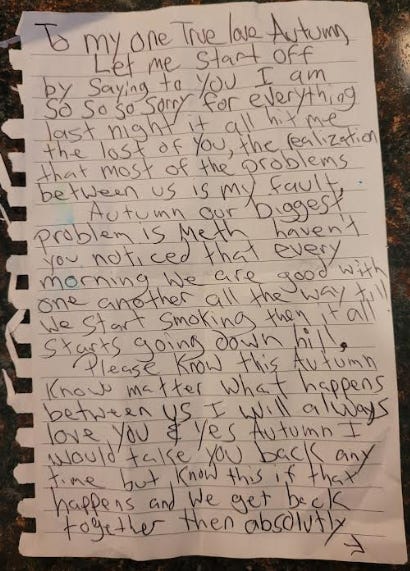 To my one True love Autumn,
Let me Start off
by Saying to You I am
So So So Sorry for everything
last night it all hit me
the lost of You, the realization
that most of the problems
between us is my fault,
Autumn our biggest
problem is Meth haven't
you noticed that every
morning we are good with
one another all the way till
we Start smoking then it all
Starts going down hill,
Please Know this Autumn
Know matter what happens
between us I will always
love You & Yes Autumn I
would take You back any
time but Know this if that
happens and we get back
together then absolutly